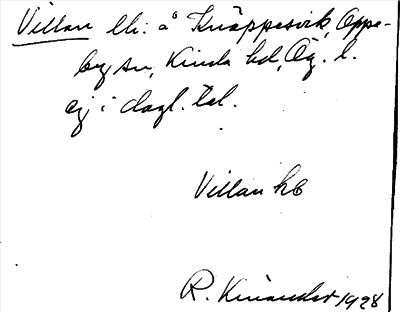 Villan lh. å Knäppesvik, Oppe-
by sn, Kinda hd, Ög. l.
ej i dagl. tal.
Villan kb
R. Kinander 1928